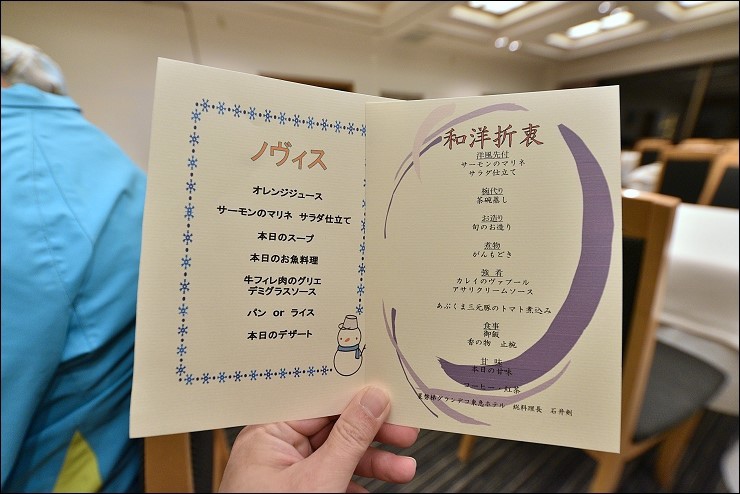 ノヴィス
オレンジジュース
サーモンのマリネ サラダ仕立て
本日のスープ
本日のお魚料理
牛フィレ肉のグリエ
デミグラスソース
パン or ライス
本日のデザート
和洋折衷
洋風先付
サーモンのマリネ
サラダ仕立て
椀代り
茶碗蒸し
お造り
旬のお造り
煮物
がんもどき
強 肴
カレイのヴァプール
アサリクリームソース
あぶくま三元豚のトマト煮込み
食事
御飯
香の物 止椀
甘 味
本日の甘味
コーヒー・紅茶
裏磐梯グランデコ東急ホテル 総料理長 石井剣